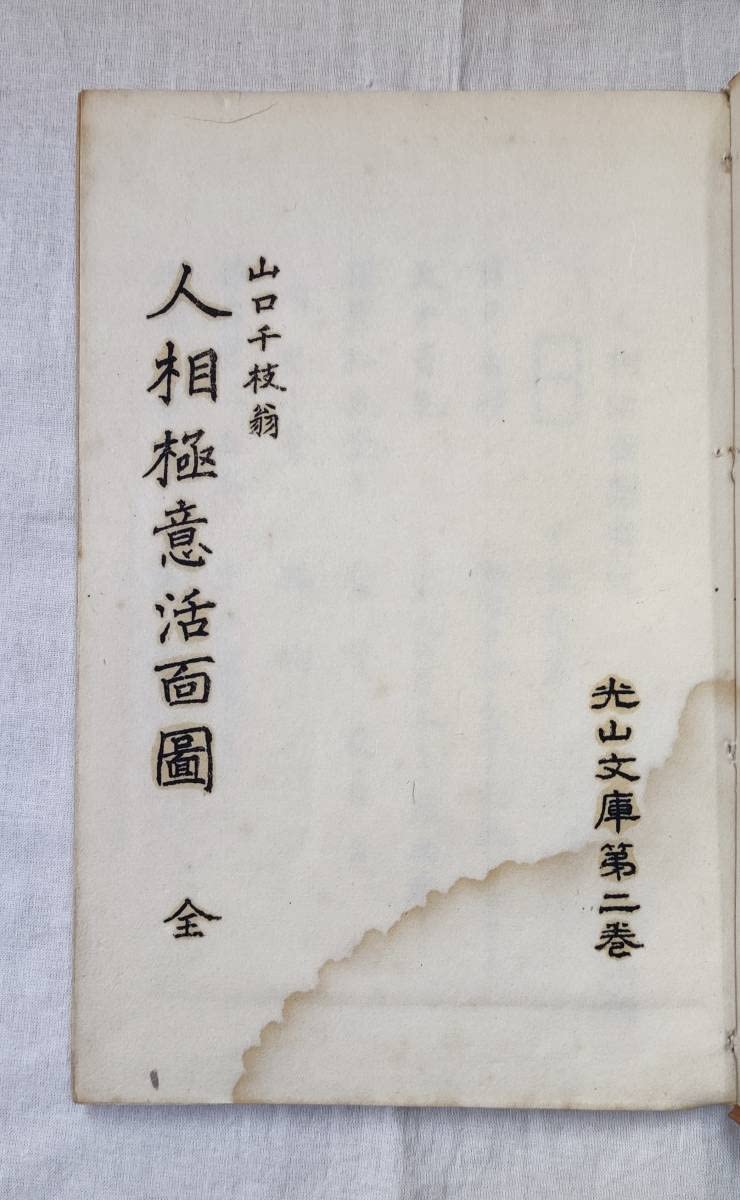 光山文庫第二巻
山口千枝翁
人相極意活面圖 全